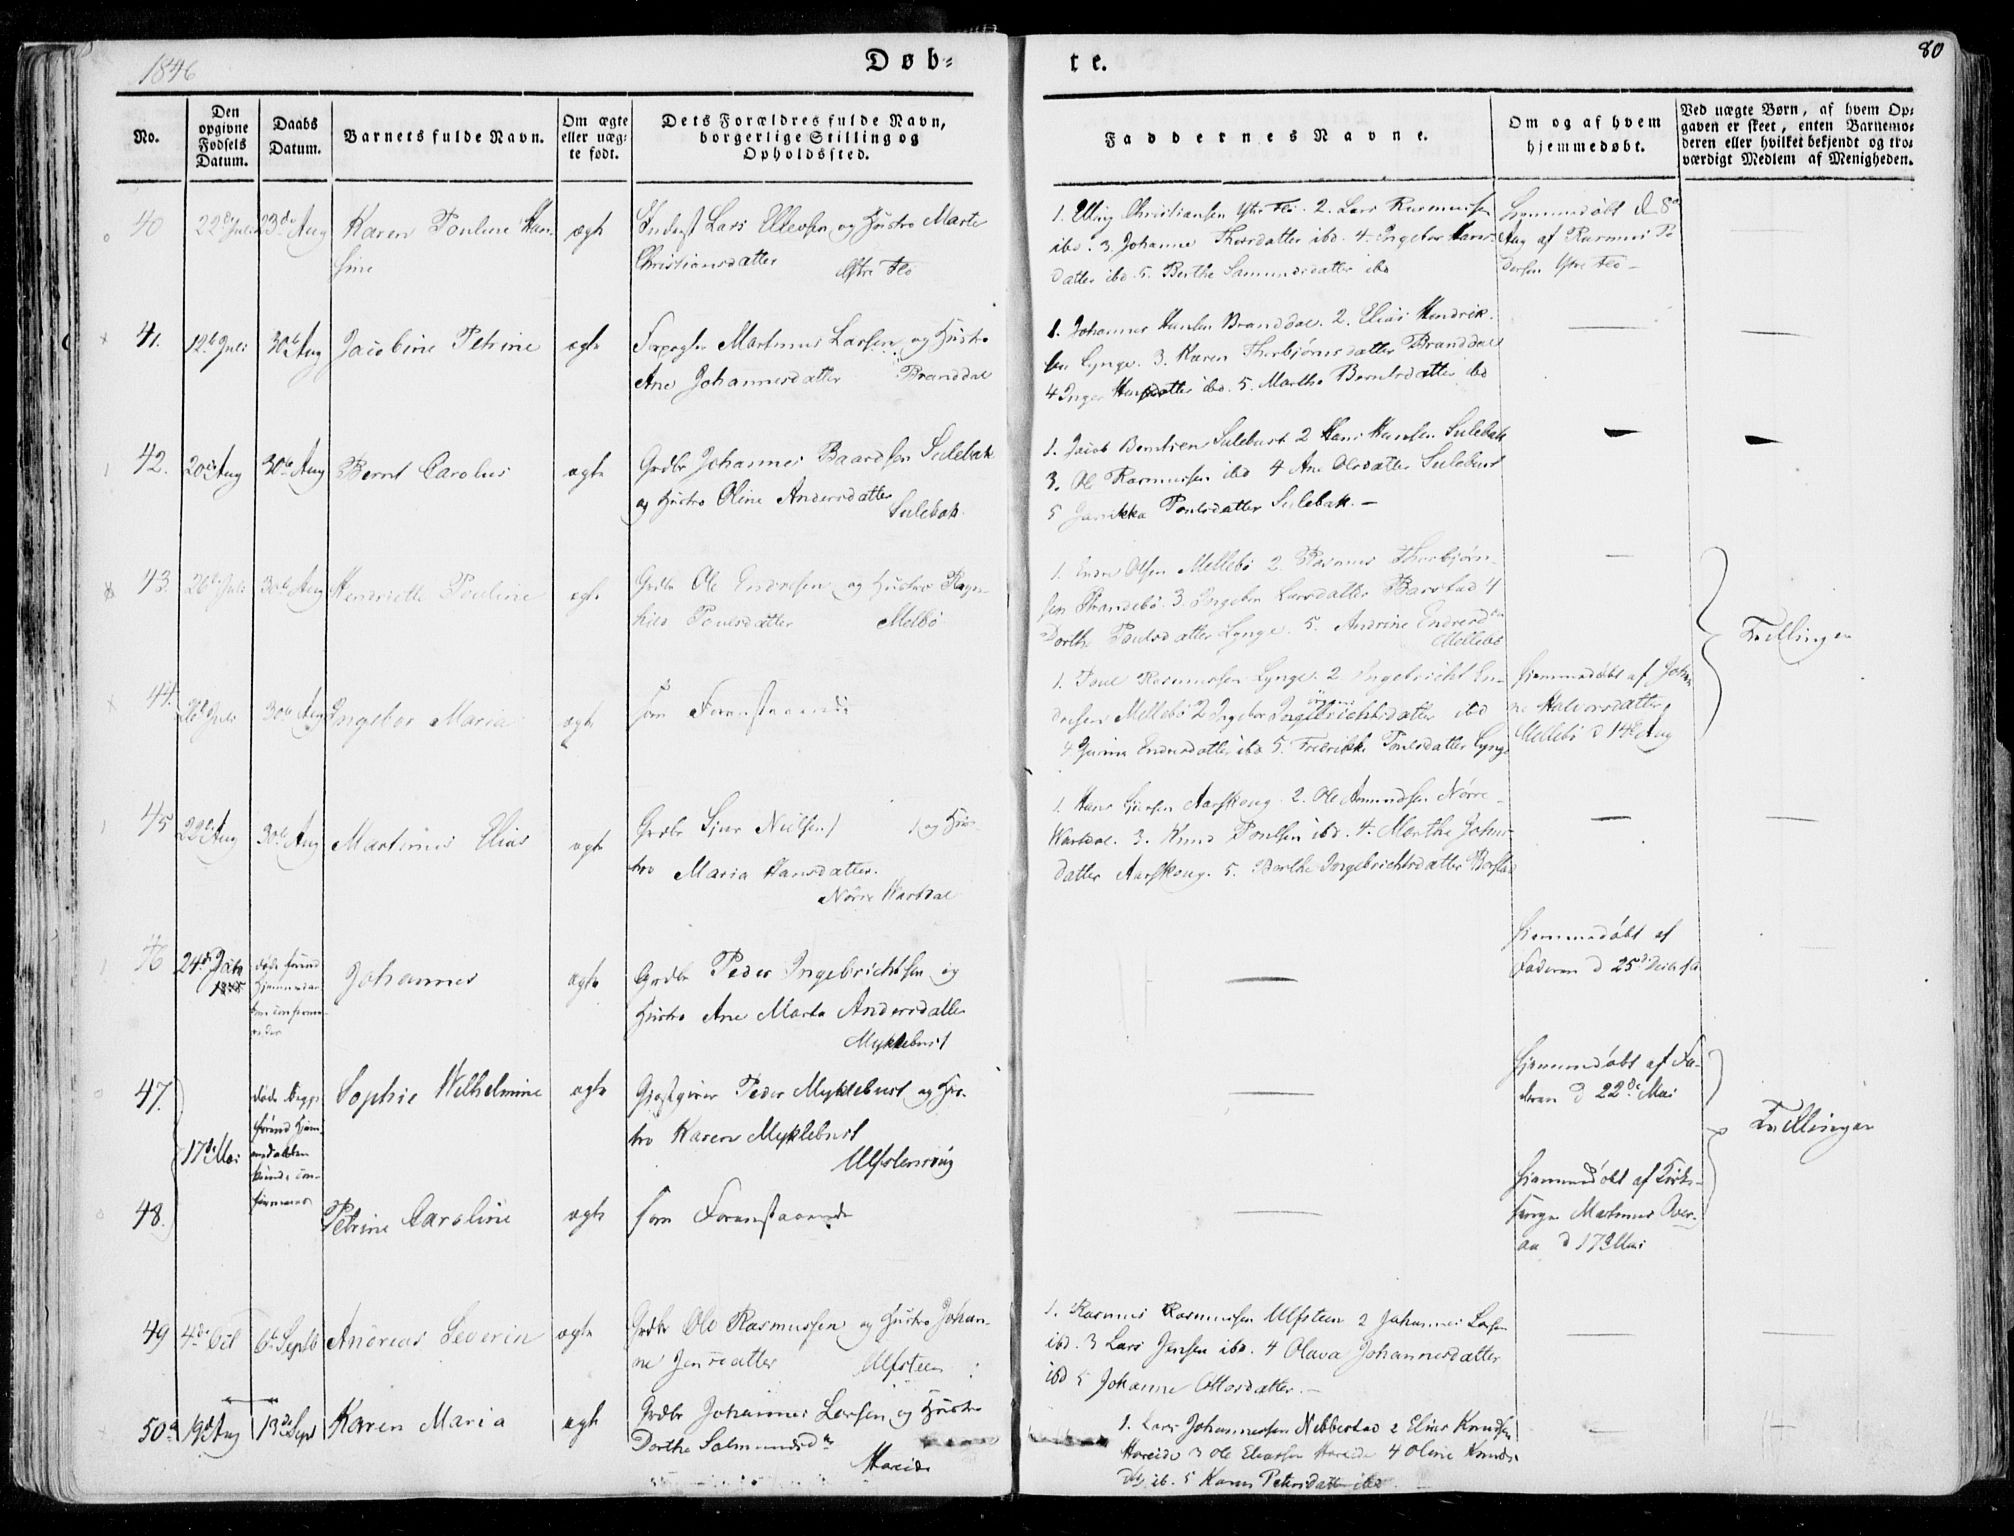 1846
Døb-
te.
80
No.
Den opgivne Fødsels Datum.
Daabs Datum.
Barnets fulde Navn.
Om ægte eller uæg-te født.
Dets Forældres fulde Navn, borgerlige Stilling og Opholdssted.
Faddernes Navne.
Om og af hvem hjemmedøbt.
Ved uægte Børn, af hvem Op-gaven er skeet, enten Barnemo-deren eller hvilket bekjendt og tro-værdigt Medlem af Menigheden.
40
22de Juli
23de Aug
Karen Pouline Han-
sine
ægte
Inderst Lars Ellevsen og Hustro Marte
Christiansdatter Ytre Flö
1. Elling Christiansen Ytre Flö. 2. Lars Rasmussen
ibd. 3. Johanne Thordatter ibd. 4. Ingebor Hans-
datter ibd. 5. Berthe Samundsdatter ibd
Hjemmedöbt d 8de
Aug af Rasmus Pe
dersen Ytre Flö
41.
12te Juli
30te Aug
Jacobine Petrine
ægte
Forpagter Martinus Larsen og Hustro
Ane Johannesdatter Branddal
1. Johannes Hansen Branddal. 2. Elias Hendrik-
sen Lynge. 3. Karen Thorbjörnsdatter Branddal
4 Inger Hansdatter ibd. 5. Marthe Berntsdatter ibd
42.
20de Aug
30te Aug
Bernt Carolus
ægte
Grdbr Johannes Baardsen Sulebak
og Hustro Oline Andersdatter
Sulebak
1. Jacob Berntsen Sulebust 2 Hans Hansen Sulebak
3. Ole Rasmussen ibd 4 Ane Olsdatter Sulebust
5 Poulsdatter Sulebak. —
43.
26de Juli
30te Aug
Henriette Pouline
ægte
Grdbr Ole Endresen og Hustro Ragn-
hild Poulsdatter Melbö
1. Endre Olsen Mellebö 2. Rasmus Thorbjörn-
sen Strandebö. 3. Ingebor Larsdatter Barstad 4
Dorthe Poulsdatter Lynge. 5. Andrine Endresd
Mellebö
Tvillinger
44.
26de Juli
30te Aug
Ingebor Maria
ægte
som Foranstaaende
1. Poul Rasmussen Lynge. 2 Ingebricht En-
dresen Mellebö 2 Ingebor Ingebrichtsdatter ibd
4 Endresdatter ibd 5. Fredrikke Poulsdatter Lynge
Hjemmedöbt af Johan
ne Halvorsdatter
Mellebö d 14de Aug
45
22de Aug
30te Aug
Martinus Elias
ægte
Grdbr Sjur Nielsen og Hus-
tro Maria Hansdatter.
Nörre Wartdal
1. Hans Aarskoug. 2. Ole Amundsen Nörre
Wartdal. 3. Knud Poulsen ibd. 4. Marthe Johns-
datter Aarskoug. 5. Berthe Ingebrichtsdatter Barstad
46
24de
1845
döde forind
Johannes
ægte
Grdbr Peder Ingebrichtsen og
Hustro Ane Marta Andersdatter
Myklebust
Hjemmedöbt af
Faderen d 25de
47.
17de Mai
döde begge
forind Hjem-
medaaben
kunde con-
firmeres
Sophie Wilhelmine
ægte
Gjestgiver Peder Myklebust og Hus-
tro Karen Myklebust
Ulfstensvig
Hjemmedöbt af Fa-
deren d 22de Mai
Tvillinger
48.
Petrine Caroline
ægte
som Foranstaaende
Hjemmedöbt af Kirke-
sanger Martinus Over-
aa d 17de Mai
49
4de
6te Septb
Andreas Severin
ægte
Grdbr Ole Rasmussen og Hustro Johan-
ne Jensdatter Ulfsteen
1. Rasmus Rasmussen Ulfsteen 2 Johannes Larsen
ibd. 3 Lars Jensen ibd. 4 Olava Johannesdatter
ibd 5 Johanne Ottosdatter. —
50
19de Aug
13de Sept
Karen Maria
ægte
Grdbr Johannes Larsen og Hustro
Dorthe Salmundsdr
Hareide
1. Lars Johannessen Nebbestad 2 Elias Knudsen
Hareide 3 Ole Hareide 4 Oline Knuds-
dtr ib. 5 Karen Petersdatter ibd